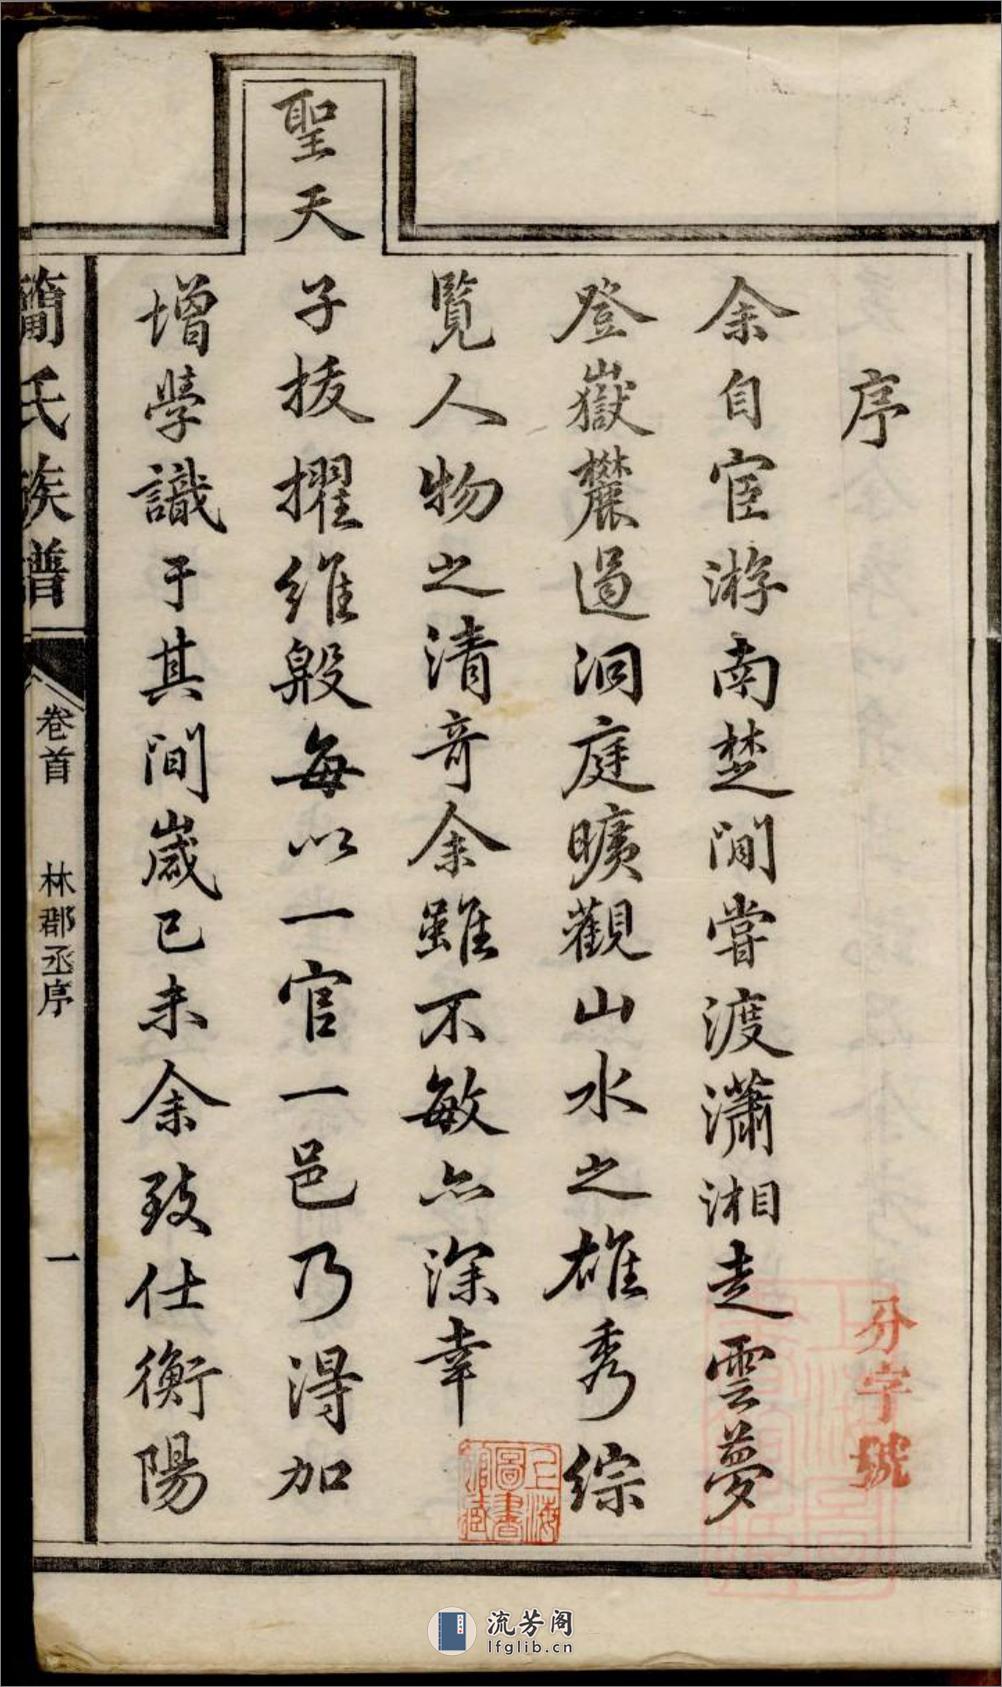 序
余自宦游南楚間嘗渡瀟湘走雲夢
登嶽麓過洞庭曠觀山水之雄秀綜
覽人物之清奇余雖不敏亦深幸
聖天
子拔擢維殷每以一官一邑乃得加
增學識于其間歲己未余致仕衡陽
簡氏族譜
卷首
林郡丞序
一
字號
上海圖書館藏
流芳阁
lfglib.cn